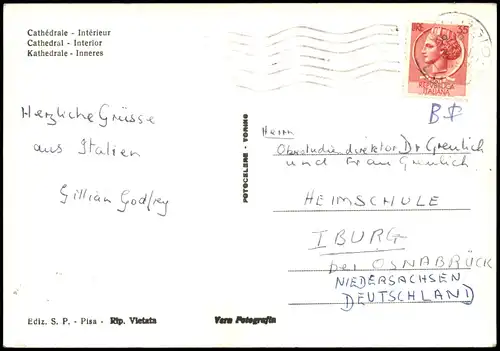 Cathédrale - Intérieur
Cathedral - Interior
Kathedrale - Inneres
LIRE 35
REPVBBLICA
ITALIANA
B
Herzliche Grüsse
aus Italien
Gillian Godfrey
FOTOCELERE - TORINO
Herrn
Oberstudiendirektor Dr Greulich
und Frau Greulich
HEIMSCHULE
IBURG
bei OSNABRÜCK
NIEDERSACHSEN
DEUTSCHLAND
Ediz. S. P. - Pisa - Rip. Vietata
Vera Fotografia